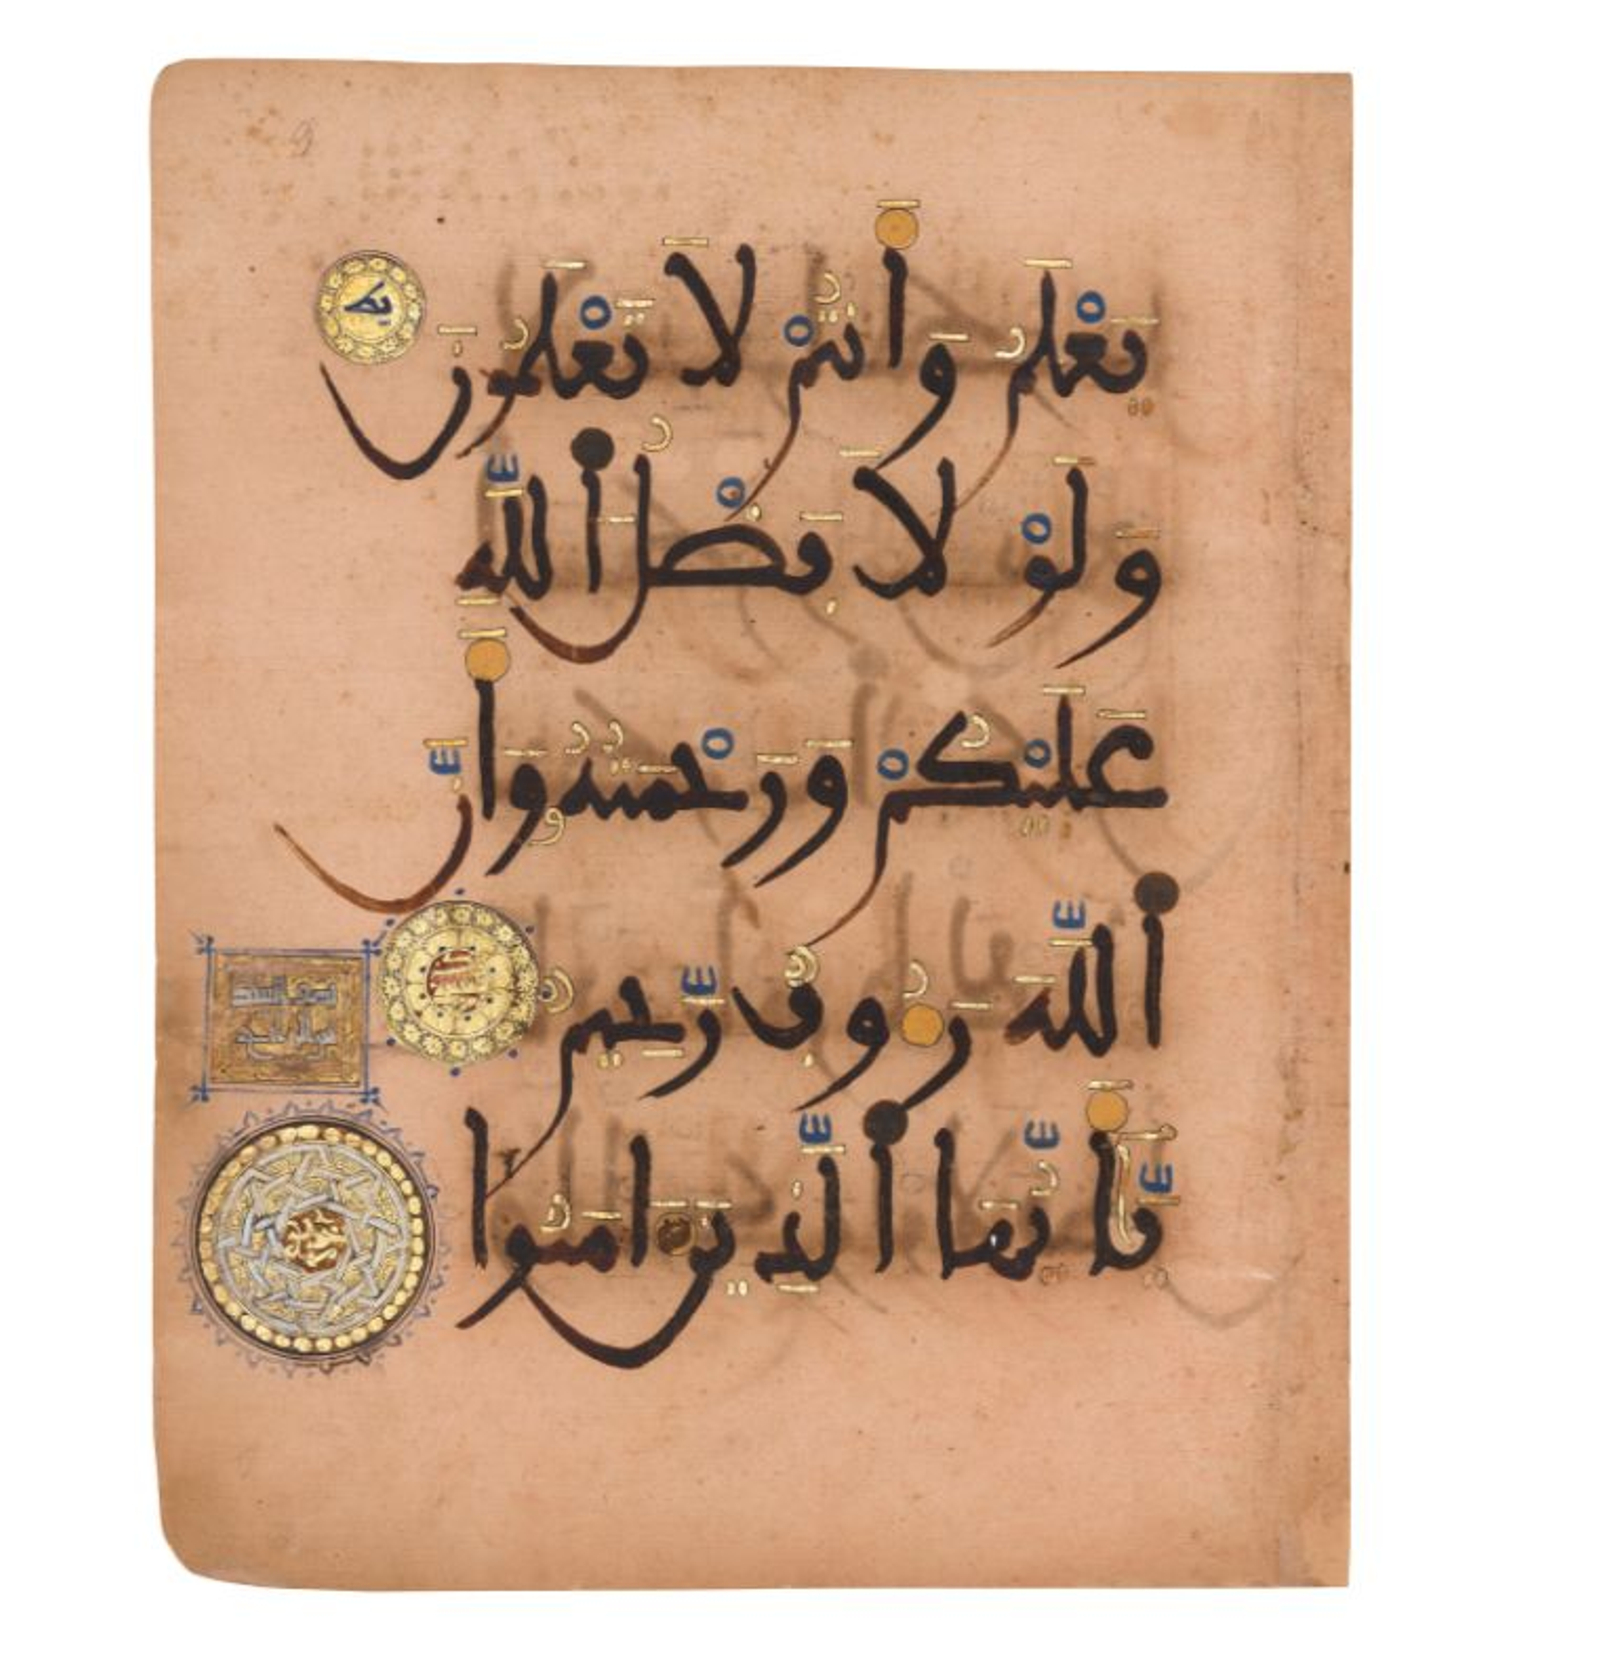 يَعْلَمُ وَأَنتُمْ لَا تَعْلَمُونَ
وَلَوْلَا فَضْلُ ٱللَّهِ
عَلَيْكُمْ وَرَحْمَتُهُ وَأَنَّ
ٱللَّهَ رَءُوفٌ رَّحِيمٌ
يَٰٓأَيُّهَا ٱلَّذِينَ ءَامَنُوا